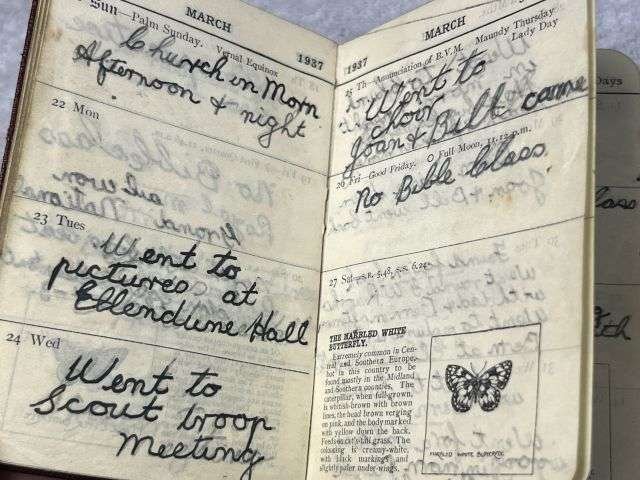 MARCH
1937
Sun—Palm Sunday. Vernal Equinox
Church in Morn
Afternoon & night
22 Mon
23 Tues
Went to
pictures at
Ellendune Hall
24 Wed
Went to
Scout troop
Meeting
MARCH
1937
25 Th—Annunciation of B.V.M. Maundy Thursday
Lady Day
Went to
choir
Joan & Bill came
26 Fri—Good Friday. O Full Moon, 11.12 p.m.
No Bible Class
27 Sat—S.R. 5.48, S.S. 6.24
THE MARBLED WHITE
BUTTERFLY.
Extremely common in Cen-
tral and Southern Europe,
but in this country to be
found mostly in the Midland
and Southern counties. The
caterpillar, when full-grown,
is whitish-brown with brown
lines, the head brown verging
on pink, and the body marked
with yellow down the back.
Feeds on cat's-tail grass. The
colouring is creamy-white,
with black markings and
slightly paler under-wings.
MARBLED WHITE BUTTERFLY
Days